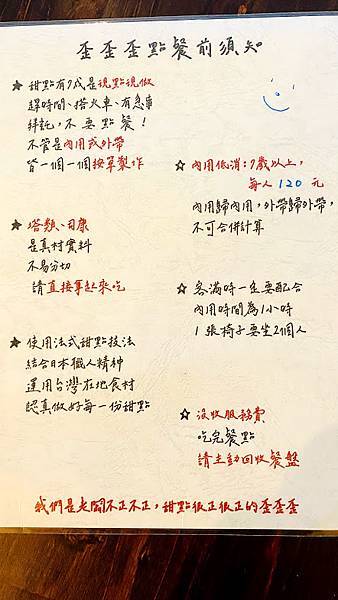 歪歪歪點餐前須知
★ 甜點有7成是現點現做
趕時間、搭火車、有急事
拜託，不要點餐！
不管是內用或外帶
皆一個一個按單製作
★ 塔類、司康
是真材實料
不易分切
請直接拿起來吃
★ 使用法式甜點技法
結合日本職人精神
運用台灣在地食材
認真做好每一份甜點
☆ 內用低消：7歲以上，
每人 120 元
內用歸內用，外帶歸外帶，
不可合併計算
☆ 客滿時一定要配合
內用時間為1小時
1張椅子要坐2個人
☆ 沒收服務費
吃完餐點
請主動回收餐盤
我們是老闆不正不正，甜點很正很正的歪歪歪